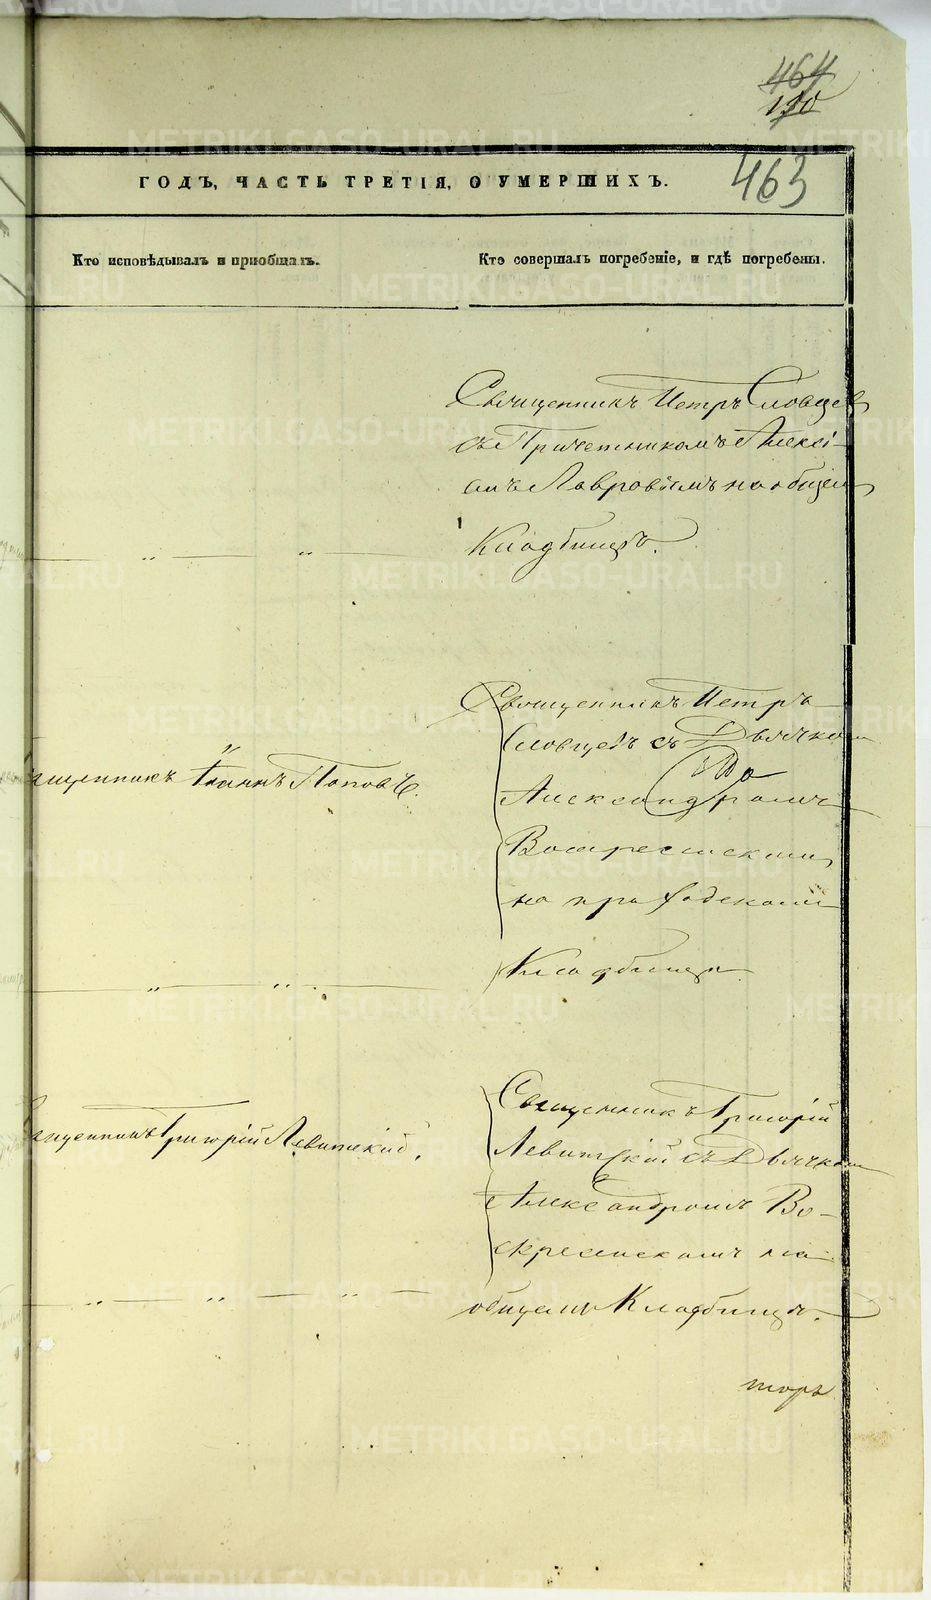 464
110
463
ГОДЪ, ЧАСТЬ ТРЕТІЯ, О УМЕРШИХЪ.
Кто исповѣдывалъ и пріобщалъ.
Кто совершалъ погребеніе, и гдѣ погребены.
Священникъ Петръ Словцев
съ Причетникомъ Алексі-
емъ Лавровымъ на общем
Кладбищѣ.
Священникъ Іоаннъ Поповъ.
Священникъ Петръ
Словцевъ съ Дьячком
Александромъ
Воскресенским
на приходскомъ
Кладбище
Священникъ Григорій Левитскій.
Священникъ Григорій
Левитскій съ Дьячком
Александромъ Во-
скресенскимъ на
общемъ Кладбищѣ.
METRIKI.GASO-URAL.RU